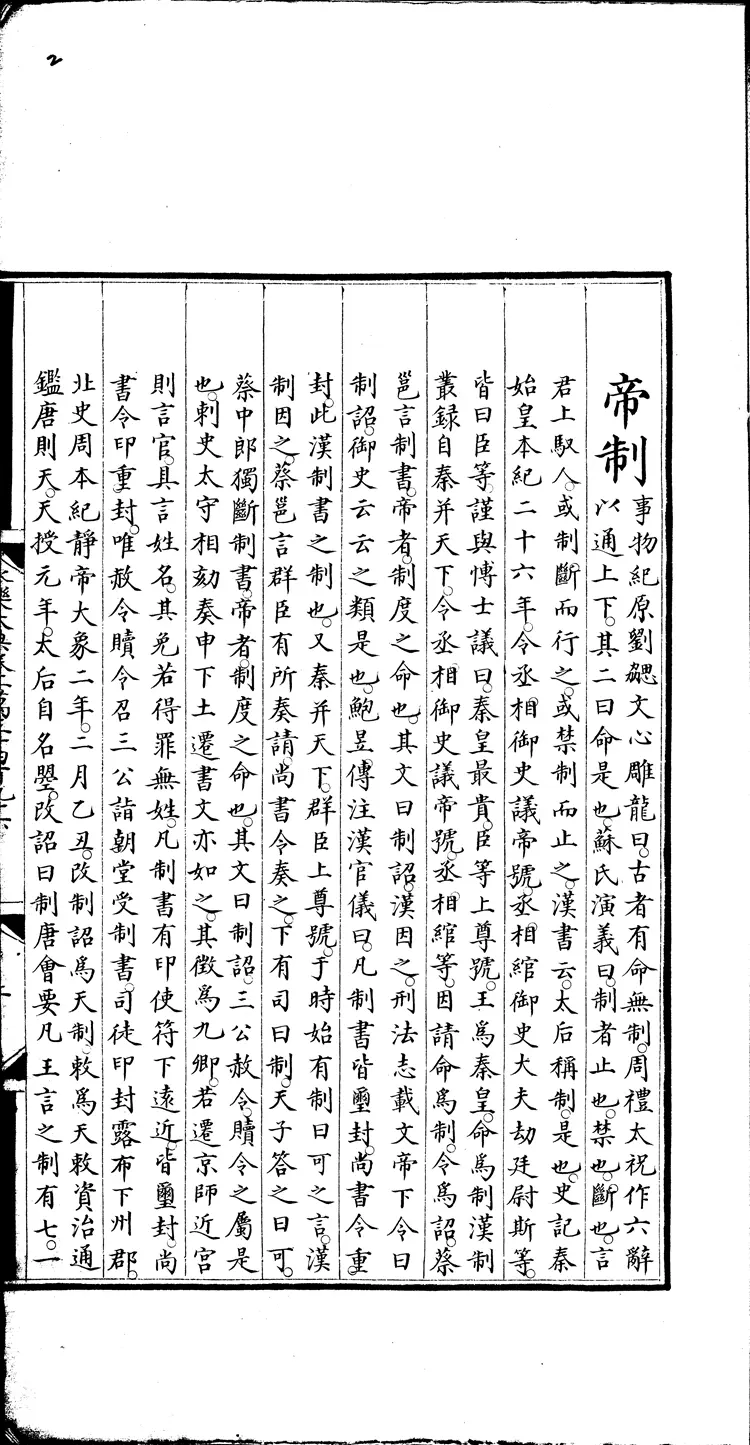 2
帝制
事物紀原劉勰文心雕龍曰。古者有命無制。周禮太祝作六辭
以通上下。其二曰命是也。蘇氏演義曰。制者止也。禁也。斷也。言
君上馭人。或制斷而行之。或禁制而止之。漢書云。太后稱制。是也。史記秦
始皇本紀二十六年。令丞相御史議帝號。丞相綰御史大夫劫廷尉斯等。
皆曰臣等。謹與愽士議曰。秦皇最貴。臣等上尊號。王爲秦皇。命爲制漢制
叢録自秦并天下。令丞相御史議帝號。丞相綰等。因請命爲制。令爲詔。蔡
邕言制書。帝者。制度之命也。其文曰制詔。漢因之。刑法志載文帝下令曰
制詔。御史云云之類是也。鮑昱傳注漢官儀曰。凡制書皆璽封。尚書令重
封。此漢制書之制也。又秦并天下。群臣上尊號。于時始有制曰可之言。漢
制因之。蔡邕言群臣有所奏請。尚書令奏之。下有司曰制。天子答之曰可。
蔡中郎獨斷制書。帝者。制度之命也。其文曰制詔。三公赦令。贖令之屬是
也。刺史太守相劾奏申下土遷書文亦如之。其徵爲九卿。若遷京師近宫
則言官。具言姓名。其免若得罪無姓。凡制書有印使符下遠近。皆璽封。尚
書令印重封。唯赦令贖令召三公詣朝堂受制書。司徒印封露布下州郡。
北史周本紀靜帝大象二年。二月乙丑。改制詔爲天制。敕爲天敕資治通
鑑唐則天。天授元年。太后自名曌。改詔曰制唐會要凡王言之制有七。一